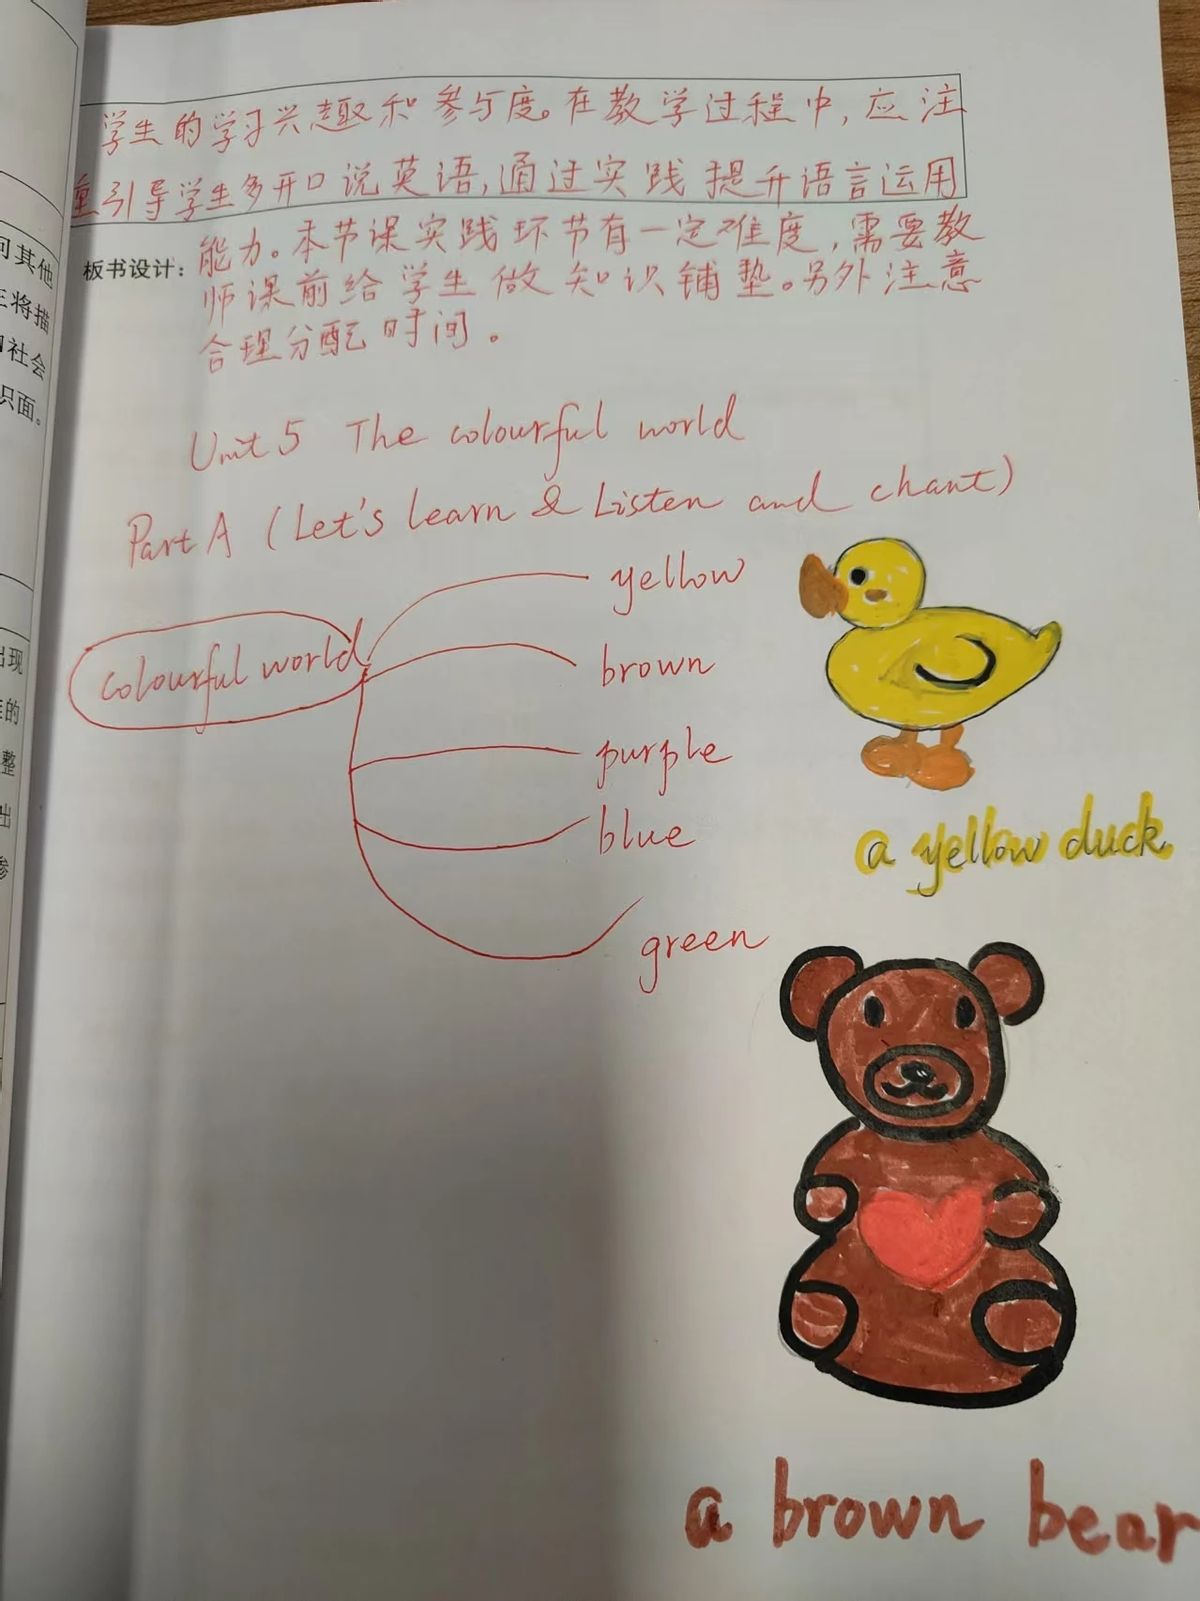 学生的学习兴趣和参与度。在教学过程中,应注
重引导学生多开口说英语,通过实践提升语言运用
能力。本节课实践环节有一定难度,需要教
板书设计:
师课前给学生做知识铺垫。另外注意
合理分配时间。
Unit 5 The colourful world
Part A (Let's learn & Listen and chant)
colourful world
yellow
brown
purple
blue
green
a yellow duck
a brown bear
问其他
将描
社会
识面。
出现
的
整
出
参